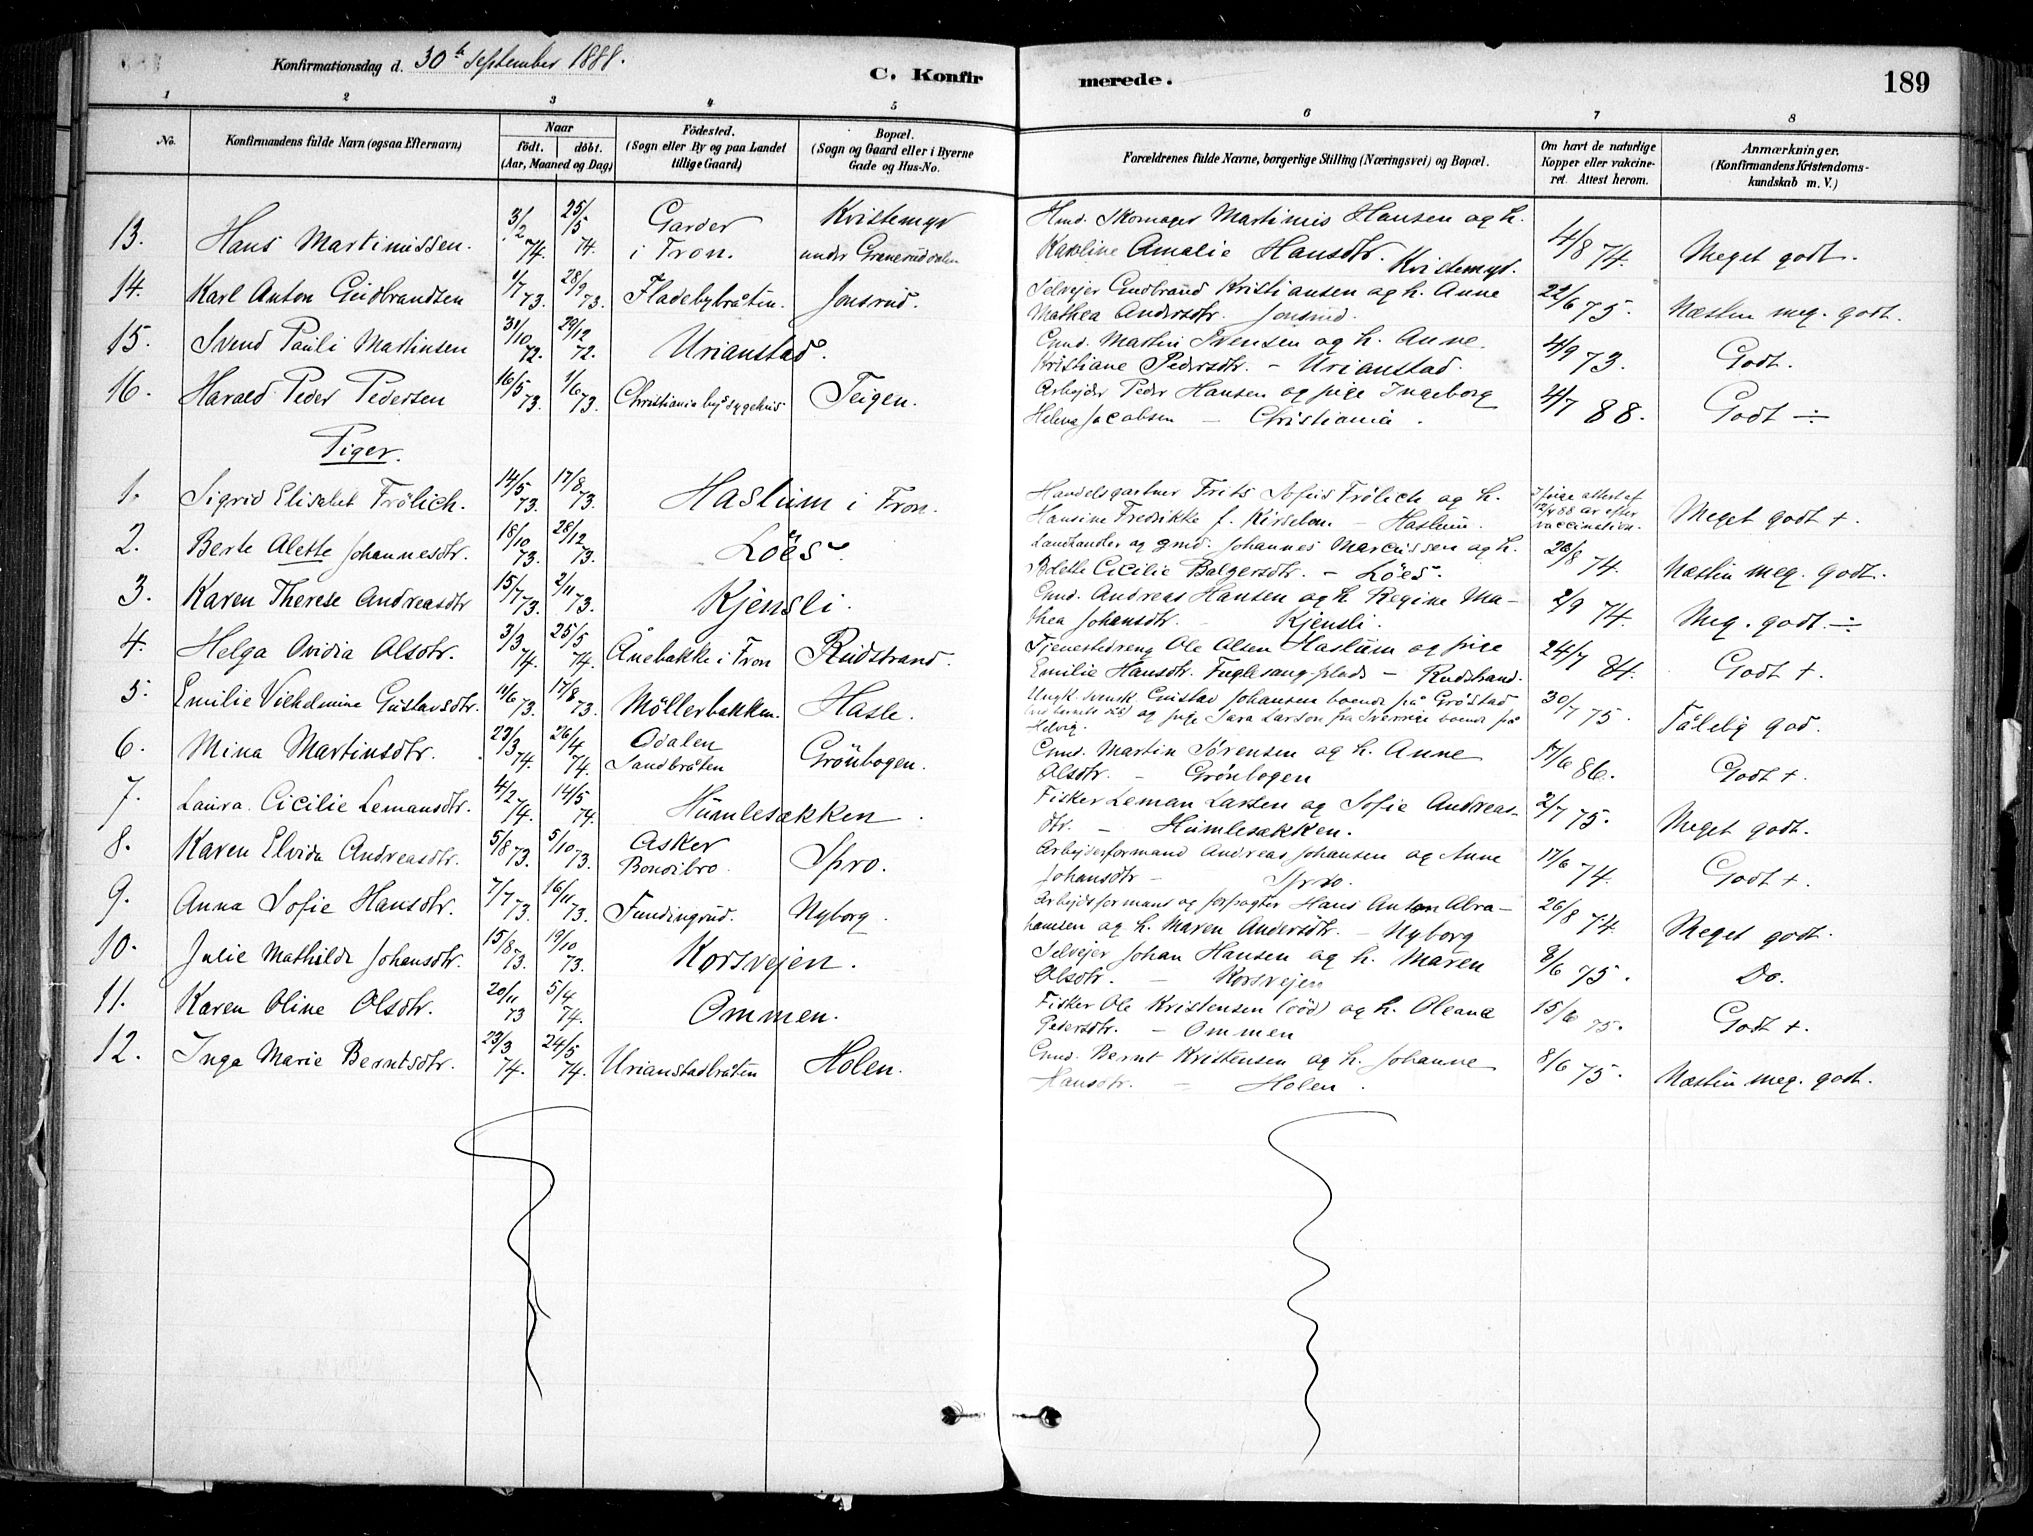 Konfirmationsdag d. 30te September 1888.
C. Konfirmerede.
189
1 2 3 4 5 6 7 8
No. Konfirmandens fulde Navn (ogsaa Efternavn) Naar født. døbt. (Aar, Maaned og Dag) Fødested. (Sogn eller By og paa Landet tillige Gaard) Bopæl. (Sogn og Gaard eller i Byerne Gade og Hus-No. Forældrenes fulde Navne, borgerlige Stilling (Næringsvei) og Bopæl. Om havt de naturlige Kopper eller vakcineret. Attest herom. Anmærkninger. (Konfirmandens Kristendomskundskab m. V.)
13. Hans Martinissen. 3/2 74. 25/5 74. Garder i Fron. Kvistemyr under Graneruddalen Hmd. Skomager Martinius Hansen og h.
Karoline Amalie Hansdtr. Kvistemyr. 4/8 74. Meget godt.
14. Karl Anton Gudbrandsen 1/7 73. 28/9 73. Fladebybråten. Jonsrud. Selvejer Gudbrand Kristiansen og h. Anne
Mathea Andersdtr. Jonsrud. 22/6 75. Næsten meg. godt.
15. Svend Pauli Martinsen 31/10 72. 29/12 72. Urianstad. Gmd. Martin Svensen og h. Anne
Kristiane Pedersdtr. – Urianstad. 4/9 73. Godt.
16. Harald Peder Pedersen 16/5 73. 1/6 73. Christiania bys sygehus Teigen. Arbejder Peder Hansen og pige Ingeborg
Helena Jacobsen – Christiania. 4/7 88. Godt ÷
Piger.
1. Sigrid Elisabet Frölich. 14/5 73. 17/8 73. Haslum i Fron. Handelsgartner Frits Sofus Frölich og h.
Hansine Fredrikke f. – Haslum. attest af 12/4 88 ar efter vaccination. Meget godt +.
2. Berte Alette Johannesdtr. 18/10 73. 28/12 73. Löes. Landhandler og gmd. Johannes Marcussen og h.
Bolette Cicilie Balgersdtr. – Löes. 26/8 74. Næsten meg. godt.
3. Karen Therese Andreasdtr 15/7 73. 2/11 73. Kjensli. Gmd. Andreas Hansen og h. Regine Ma-
thea Johansdtr. – Kjensli. 2/9 74. Meg. godt. ÷
4. Helga Ovidia Olsdtr. 3/3 74. 25/5 74. Ånebakke i Fron Rudstrand. Tjenestedreng Ole Olsen Haslum og pige
Emilie Hansdtr. Fuglesang plads – Rudstrand. 24/7 84. Godt +.
5. Emilie Vilhelmine Gustavsdtr. 11/6 73. 17/8 73. Möllerbakken. Hasle. Ungk. svensk Gustav Johansen boende på Gröstad
og pige Sara Larson fra Sverrige boende på
Helvig. 30/7 75. Tålelig god.
6. Mina Martinsdtr. 23/3 74. 26/4 74. Odalen Sandbråten Grönbogen. Gmd. Martin Sörensen og h. Anne
Olsdtr. – Grönbogen 17/6 86. Godt +.
7. Laura Cicilie Lemansdtr. 4/2 74. 14/5 74. Humlesækken. Fisker Leman Larsen og Sofie Andreas-
dtr. – Humlesækken. 2/7 75. Meget godt.
8. Karen Elvida Andreasdtr. 5/8 73. 5/10 73. Asker Bondibro Spro. Arbejderformand Andreas Johansen og Anne
Johansdtr – Spro. 17/6 74. Godt +.
9. Anna Sofie Hansdtr. 7/7 73. 16/11 73. Fundingrud. Nyborg. Arbejdsformand og forpagter Hans Anton Abra-
hamsen og h. Maren Andersdtr. – Nyborg 26/8 74. Meget godt.
10. Julie Mathilde Johansdtr. 15/8 73. 19/10 73. Korsvejen. Selvejer Johan Hansen og h. Maren
Olsdtr. – Korsvejen 8/6 75. Do.
11. Karen Oline Olsdtr. 20/11 73 5/4 74. Ommen. Fisker Ole Kristensen (död) og h. Oleane
Pedersdtr. – Ommen 15/6 75. Godt +.
12. Inga Marie Berntsdtr. 23/3 74. 24/5 74. Urianstadbråten Holen. Gmd. Bernt Kristensen og h. Johanne
Hansdtr. – Holen. 8/6 75. Næsten meg. godt.